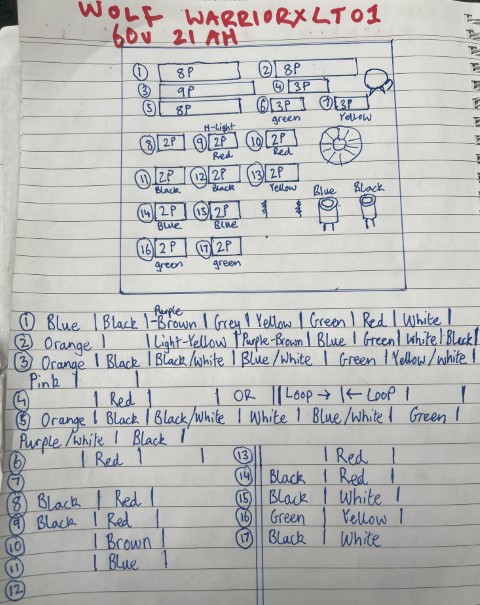 WOLF WARRIORXLT01
60V 21 AH
① 8P ② 8P
③ 9P ④ 3P
⑤ 8P ⑥ 3P ⑦ 3P
green Yellow
H-Light
⑧ 2P ⑨ 2P ⑩ 2P
Red Red
⑪ 2P ⑫ 2P ⑬ 2P
Black Black Yellow Blue Black
⑭ 2P ⑮ 2P
Blue Blue
⑯ 2P ⑰ 2P
green green
Purple
① Blue | Black | -Brown | Grey | Yellow | Green | Red | White |
② Orange | | Light-Yellow | Purple-Brown | Blue | Green | White | Black |
③ Orange | Black | Black/White | Blue/White | Green | Yellow/white |
Pink | |
④ | Red | | OR || Loop → | ← Loop | |
⑤ Orange | Black | Black/White | White | Blue/White | Green |
Purple/White | Black |
⑥ | Red | |
⑦
⑧ Black | Red |
⑨ Black | Red |
⑩ | Brown |
⑪ | Blue |
⑫
⑬ | Red |
⑭ Black | Red |
⑮ Black | White |
⑯ Green | Yellow |
⑰ Black | White